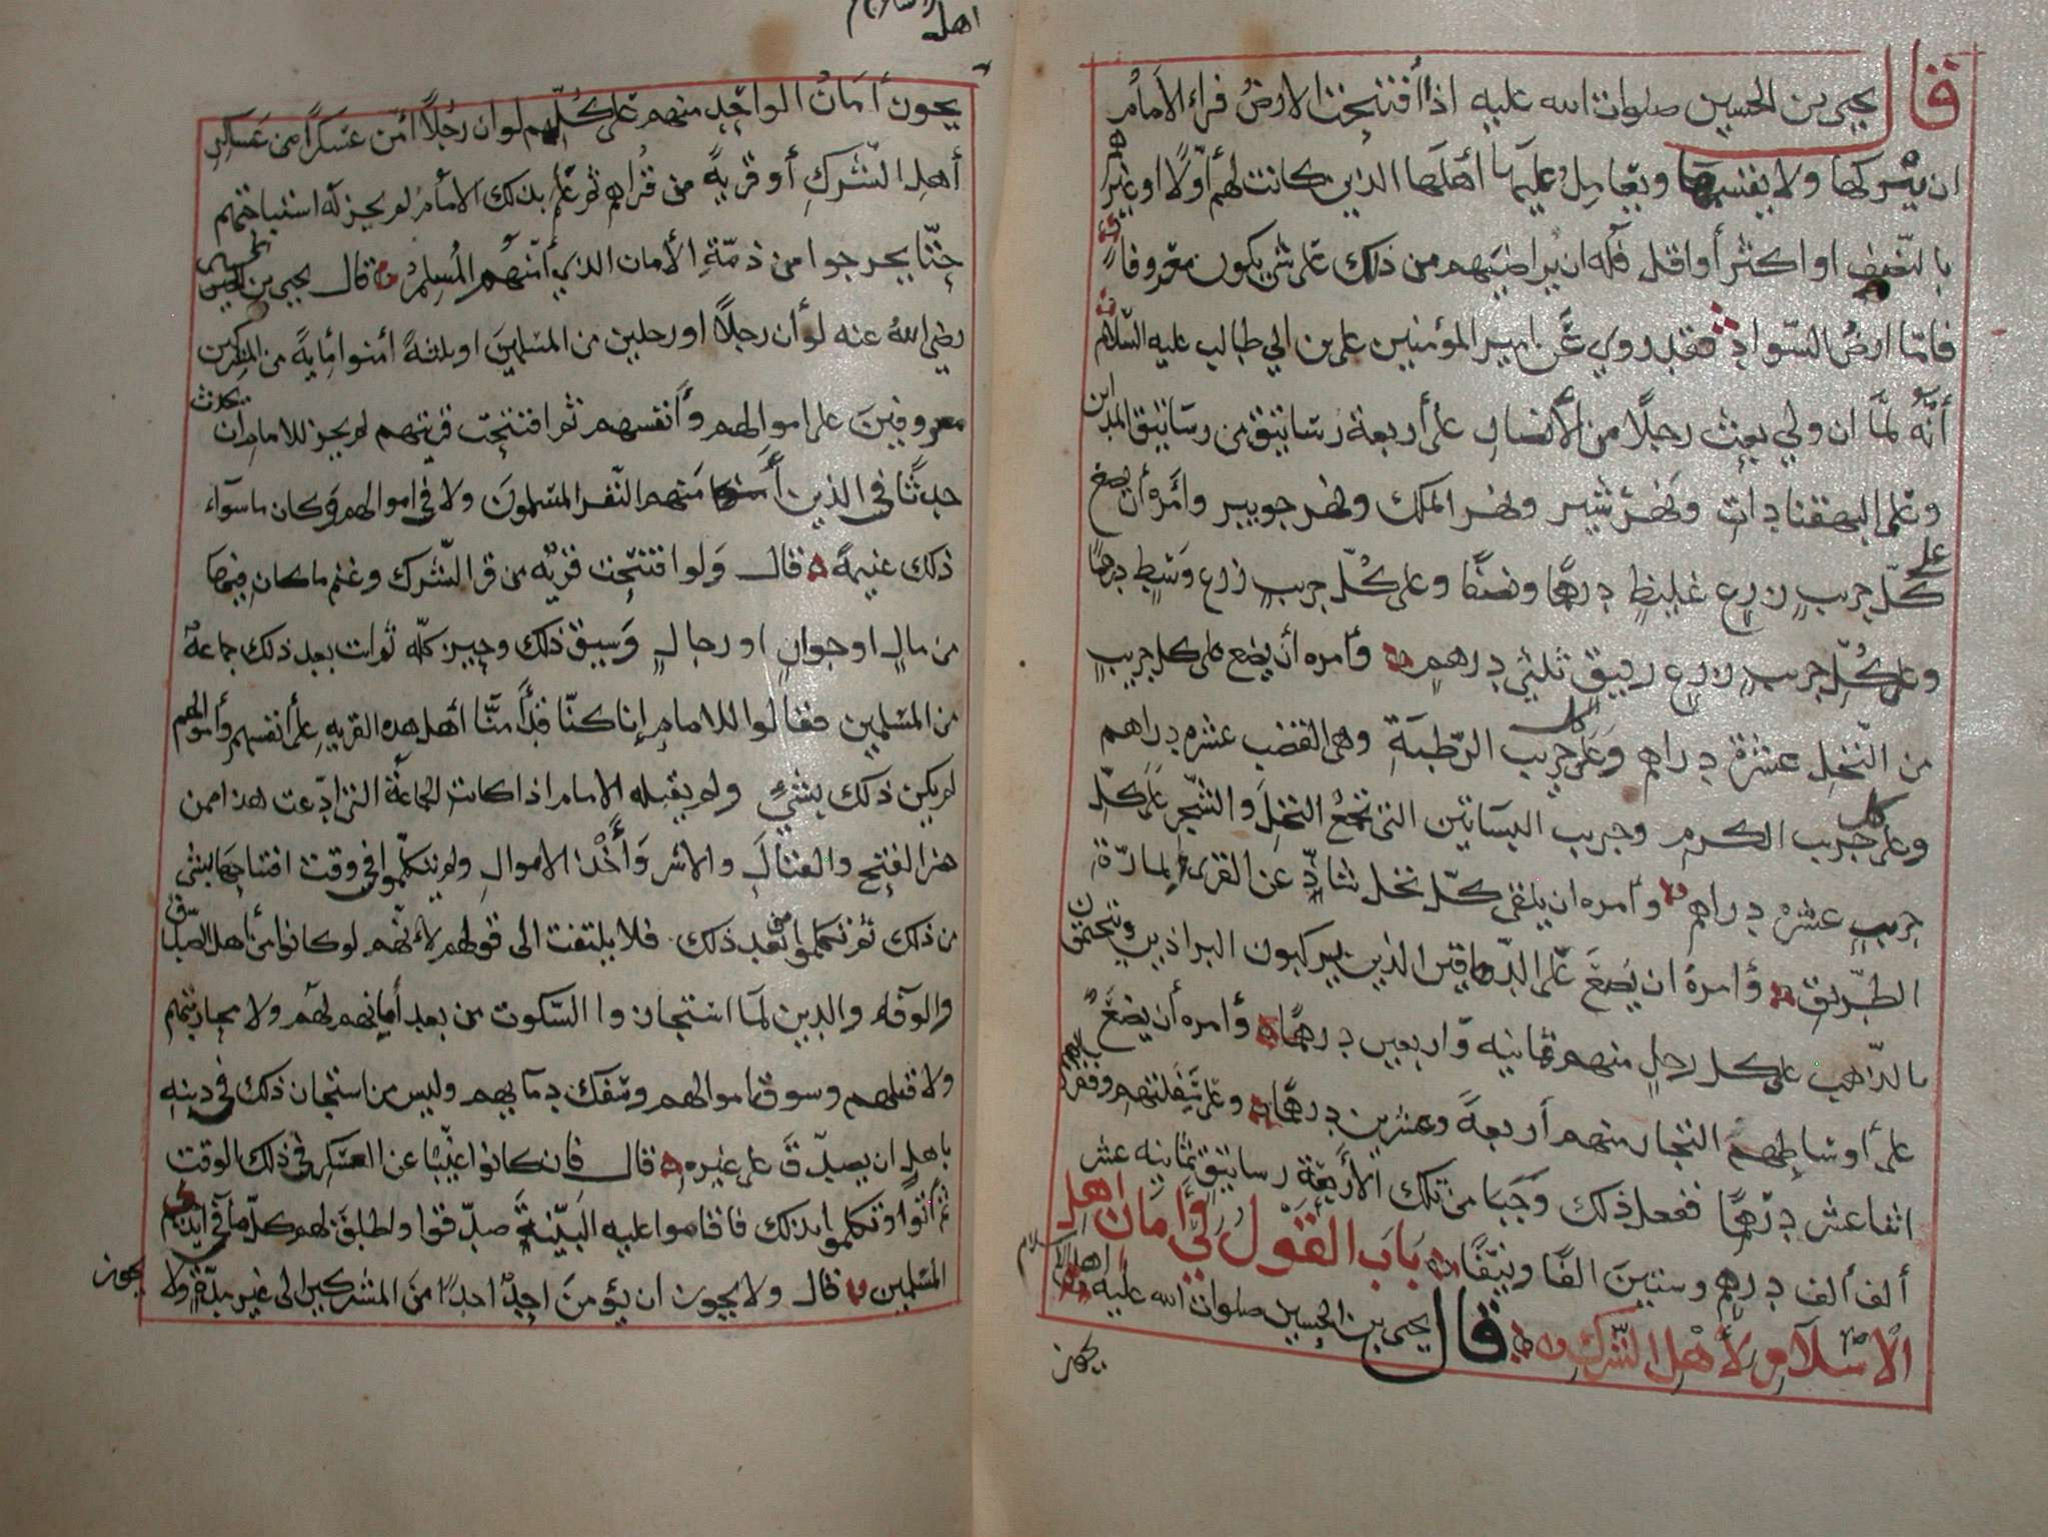 قال يحيى بن الحسين صلوات الله عليه اذا أفتتحت الارض فراء الامام
ان يتركها ولا يقسمها ويعامل عليها أهلها الذين كانت لهم أولا او غيرهم
بالنصف او اكثر أو اقل فله ان يراضيهم من ذلك على شي يكون معروفا
فاما ارض السواد فقد روي عن امير المؤمنين علي بن ابي طالب عليه السلام
أنه لما ان ولي بعث رجلا من الأنصار على أربعة رساتيق من رساتيق المداين
وعلى البهقنادات ونهر شير ونهر الملك ونهر جويبر وامره أن يضع
على كل جريب زرع غليظ درهما ونصفا وعلى كل جريب زرع وسط درهما
وعلى كل جريب زرع رقيق ثلثي درهم وأمره أن يضع على كل جريب
من النخل عشرة دراهم وعلى كل جريب الرطبة وهي القضب عشره دراهم
وعلى كل جريب الكرم وجريب البساتين التي تجمع النخل والشجر على كل
جريب عشره دراهم وأمره ان يلقي كل نخل شاذ عن القرى لمارة
الطريق وأمره ان يضع على الدهاقين الذين يركبون البراذين ويتختمون
بالذهب على كل رجل منهم ثمانيه واربعين درهما وأمره أن يضع
على أوساطهم التجار منهم أربعة وعشرين درهما وعلى سفلتهم وفقرائهم
اثنا عشر درهما ففعل ذلك وجبا من تلك الأربعة رساتيق ثمانيه عشر
ألف ألف درهم وستين الفا ونيفا باب القول في أمان اهل
الاسلام لأهل الشرك قال يحيى بن الحسين صلوات الله عليه
يجوز
يجوز أمان الواحد منهم على كلهم لو ان رجلا امن عسكرا من عساكر
أهل الشرك أو قرية من قراهم ثم علم بذلك الامام لم يجز له استباحتهم
حتى يخرجوا من ذمة الأمان الذي أمنهم المسلم قال يحيى بن الحسين
رضي الله عنه لو أن رجلا او رجلين من المسلمين او ثلثة أمنوا مأية من المشركين
معروفين على اموالهم وأنفسهم ثم افتتحت قريتهم لم يجز للامام ان يحدث
حدثا في الذين أمنهم النفر المسلمون ولا في اموالهم وكان ما سوآء
ذلك غنيمة قال ولو افتتحت قرية من قرى الشرك وغنم ما كان فيها
من مال او حيوان او رجال وسبق ذلك وحيز كله ثم ات بعد ذلك جماعة
من المسلمين فقالوا للامام إنا كنا قد أمنا أهل هذه القريه على أنفسهم وأموالهم
لم يكن ذلك بشيء ولم يقبله الامام اذا كانت الجماعة التي ادعت هذا ممن
حضر الفتح والقتال والاسر وأخذ الاموال ولم يتكلموا في وقت افتتاحها بشي
من ذلك ثم تكلموا من بعد ذلك فلا يلتفت الى قولهم لأنهم لو كانوا من أهل الصدق
والوفاء والدين لما استجازوا السكوت من بعد أمانهم لهم ولا محاربتهم
ولا قتلهم وسوق اموالهم وسفك دمايهم وليس من استجاز ذلك في دينه
باهل ان يصدق على غيره قال فان كانوا غيبا عن العسكر في ذلك الوقت
ثم أتوا وتكلموا بذلك فاقاموا عليه البينة صدقوا واطلق لهم كل ما في ايدي
المسلمين قال ولا يجوز ان يؤمن احد احدا من المشركين الى غير مدة ولا
يجوز